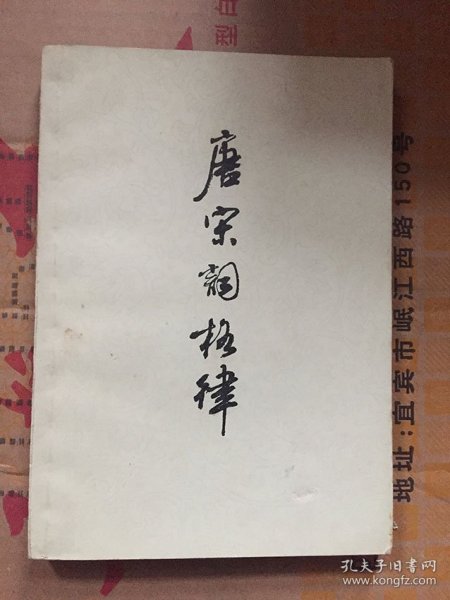 唐宋词格律
地址:宜宾市岷江西路150号
孔夫子旧书网
www.kongfz.com